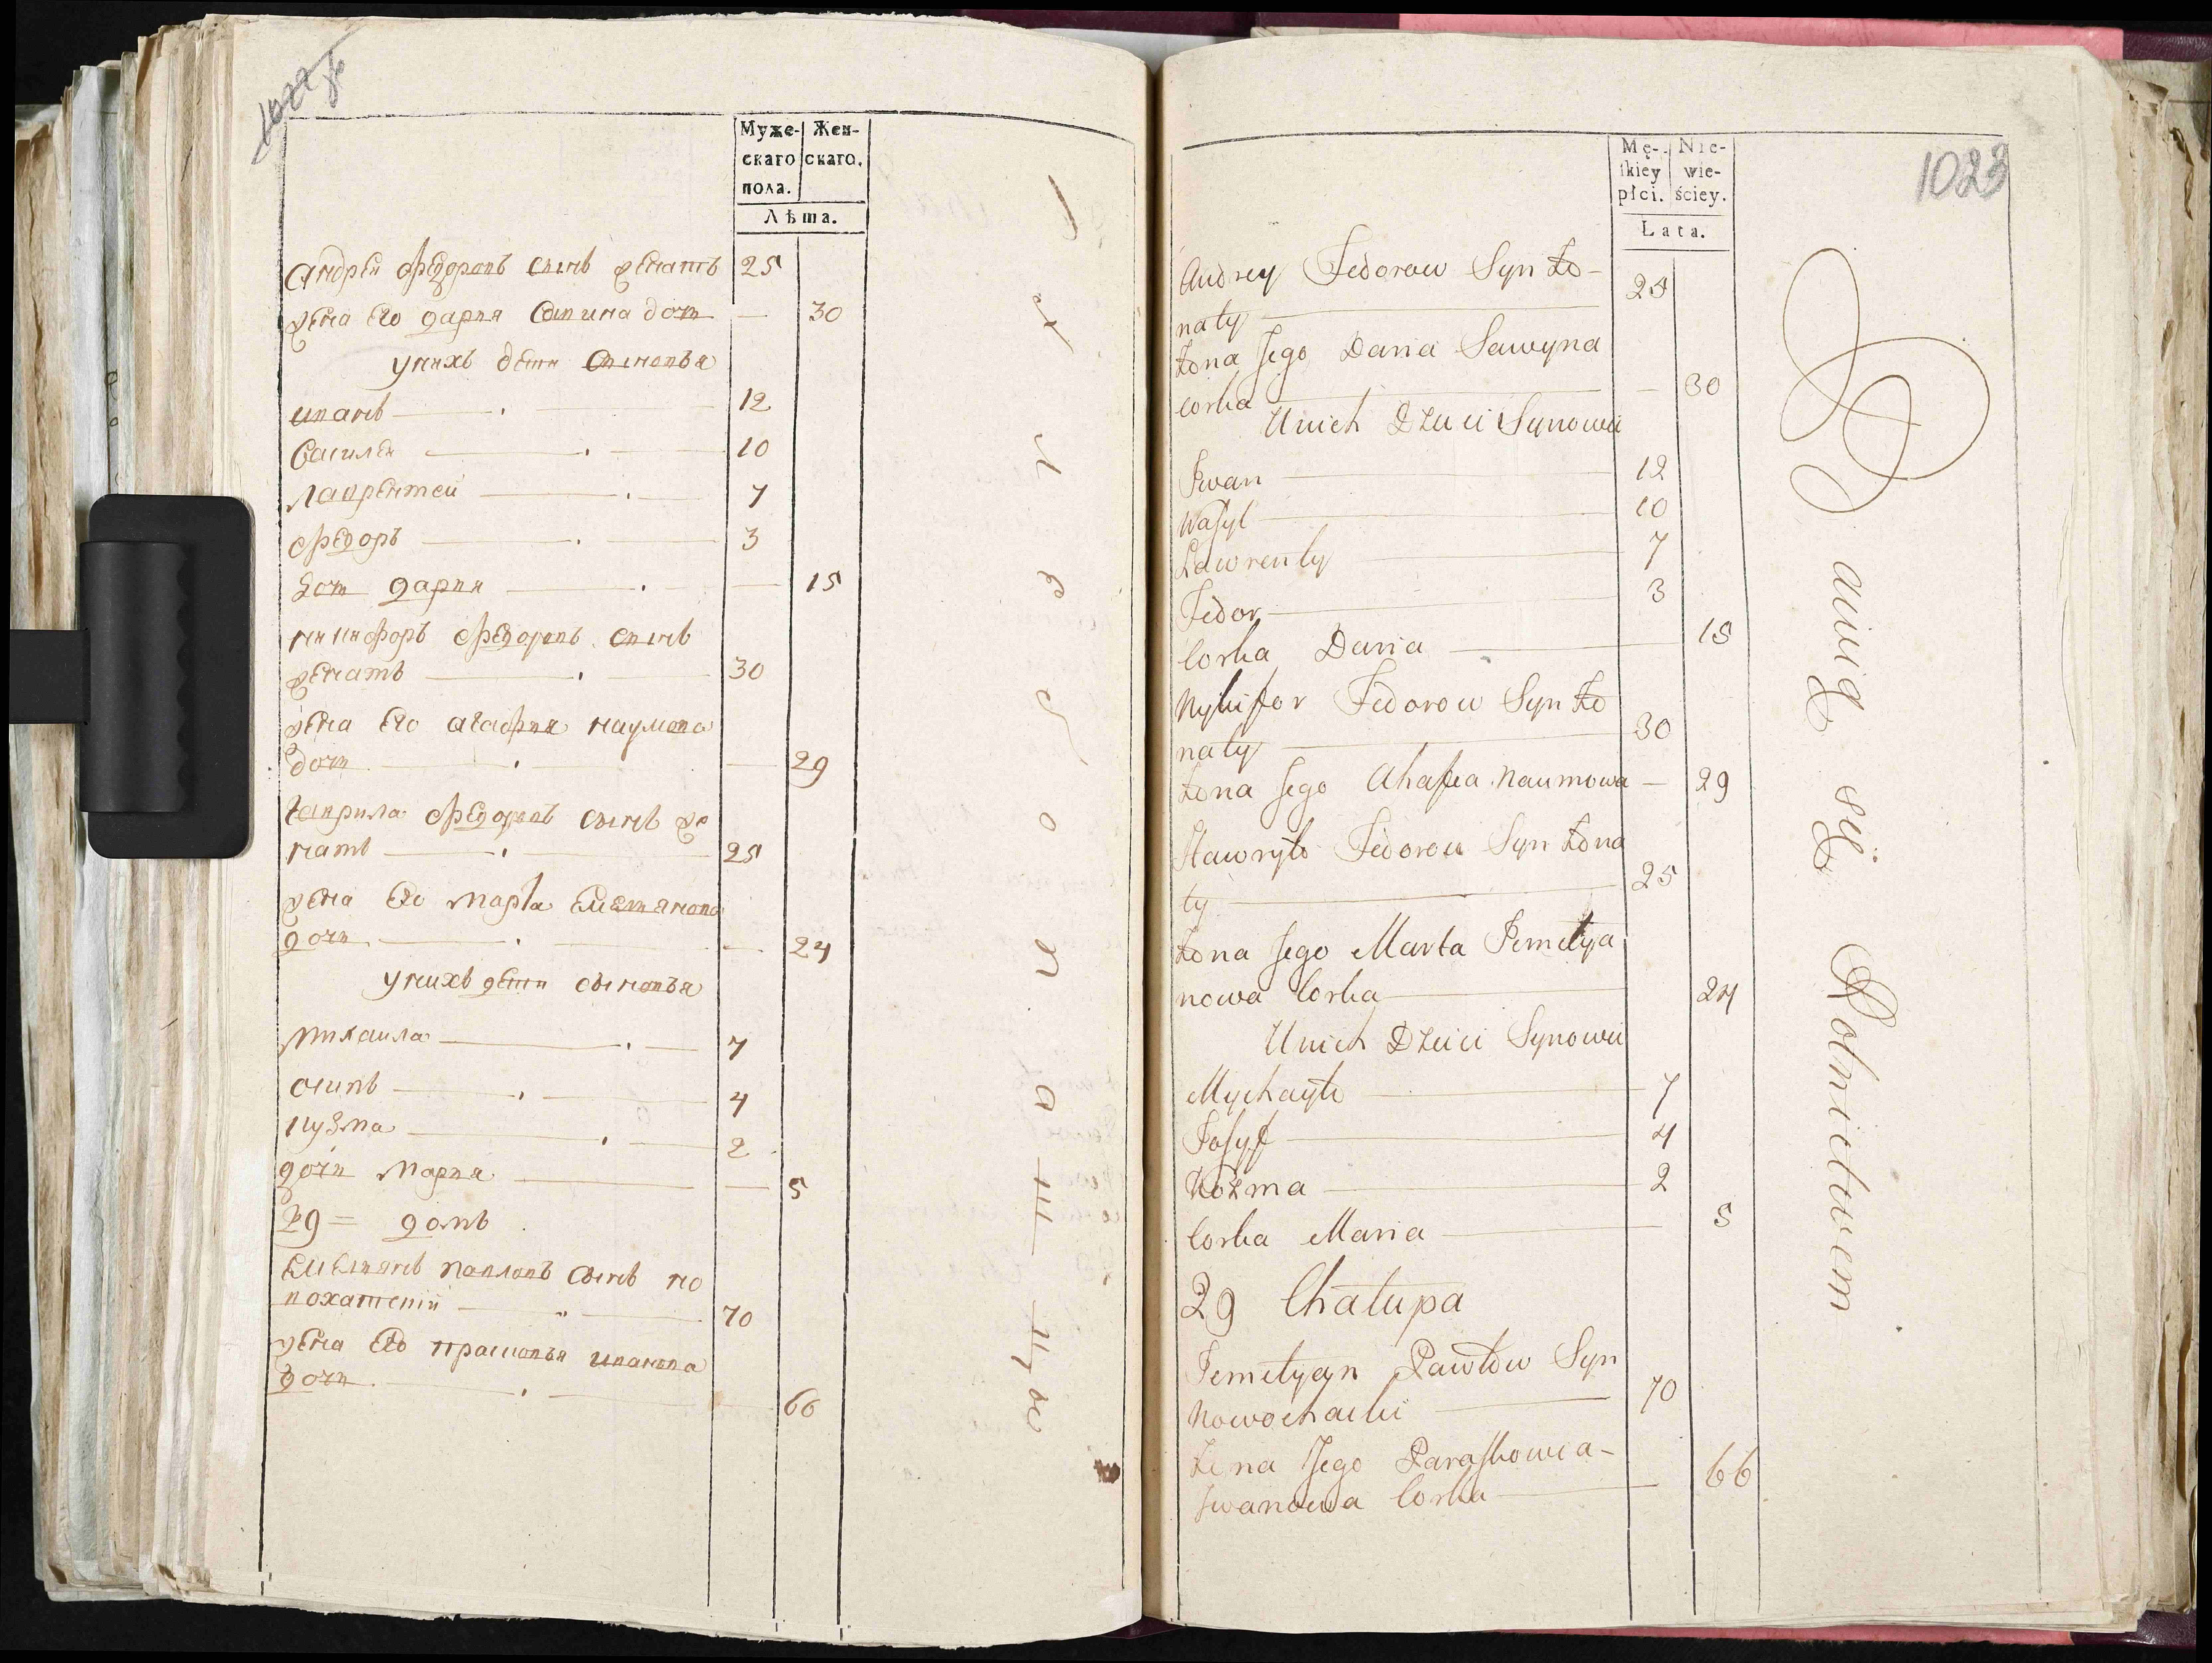 Муже- Жен-
скаго скаго.
пола.
Лѣта.
Андрей Федоровъ сынъ женатъ 25
жена Его дарья Савина дочь — 30
унихъ дети сыновья
иванъ — 12
Василей — 10
Лаврентей — 7
Федоръ — 3
дочь дарья — 15
никифоръ Федоровъ сынъ
женатъ — 30
жена Его агафья наумова
дочь — 29
Гаврила Федоровъ сынъ же
натъ — 25
жена Его марѳа Емельянова
дочь — 24
унихъ дети сыновья
михаила — 7
осипъ — 4
кузма — 2
дочь марья — 5
29 = домъ
Емельянъ павловъ сынъ но
вохатский — 70
жена Его прасковья иванова
дочь — 66
1023
Mę- Nie-
ſkiey wie-
płci. ściey.
Lata.
Andrey Fedorow Syn Żo-
naty — 25
Żona Jego Daria Sawyna
Corka — 30
Unich Dzieci Synowie
Iwan — 12
Waſyl — 10
Lawrenty — 7
Fedor — 3
Corka Daria — 15
Nykifor Fedorow Syn Żo
naty — 30
Żona Jego Ahafia Naumowa — 29
Hawryło Fedorow Syn Żona
ty — 25
Żona Jego Marta Jemelya
nowa Corka — 24
Unich Dzieci Synowie
Mychayło — 7
Joſyf — 4
Kozma — 2
Corka Maria — 5
29 Chałupa
Jemelyan Pawłow Syn
Nowochacki — 70
Żona Jego Paraſkowia-
Iwanowa Corka — 66
Bawią się Rolnictwem